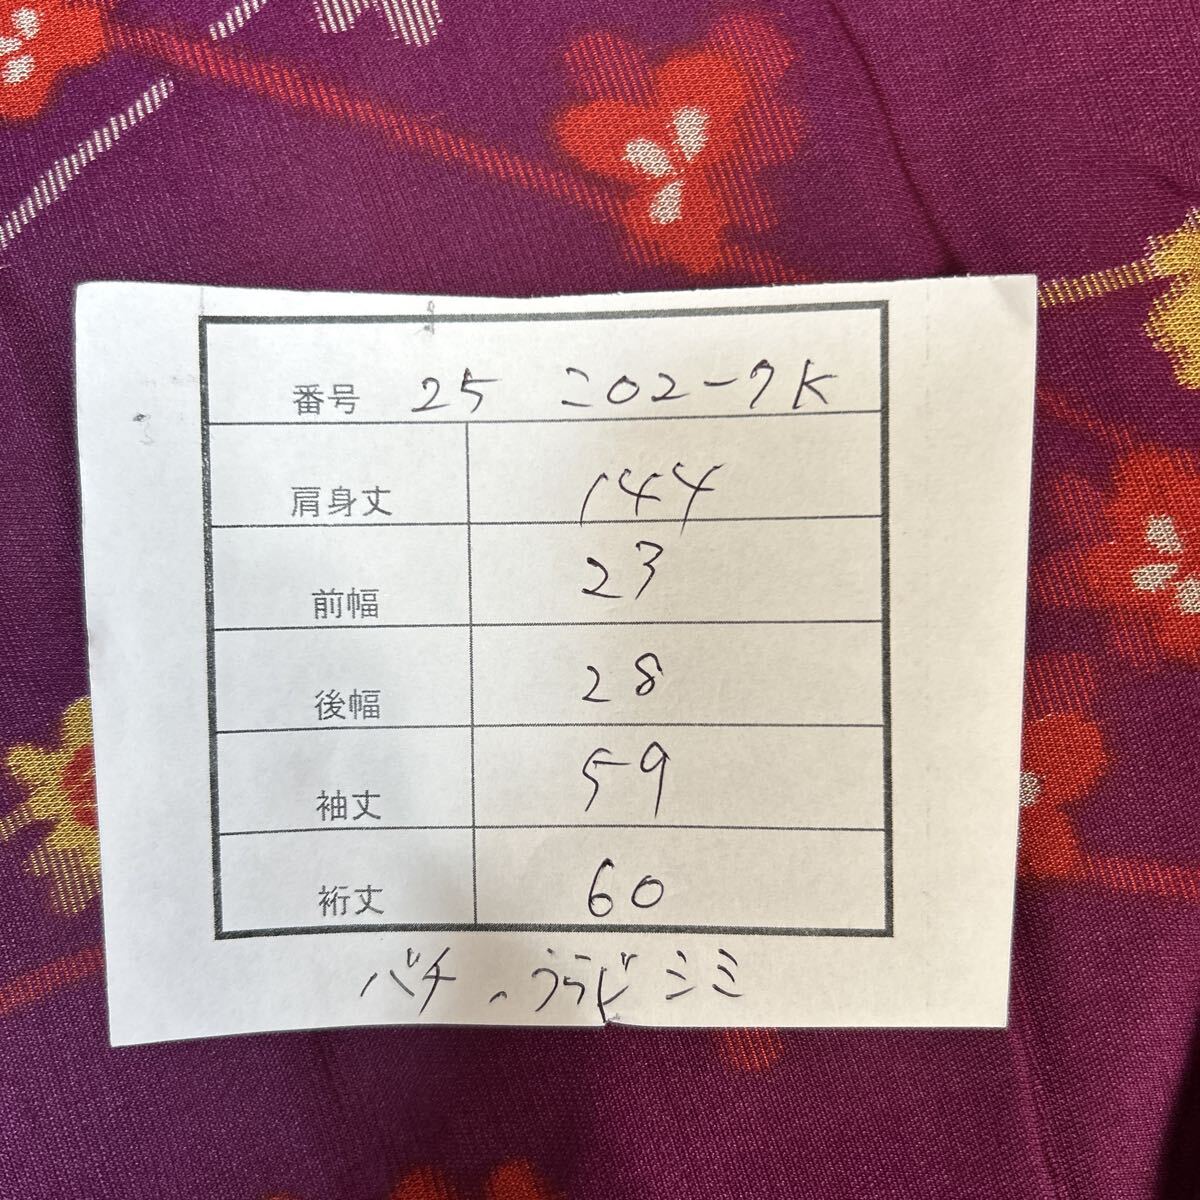 番号 25 こ02-7K
肩身丈 144
前幅 23
後幅 28
袖丈 59
裄丈 60
バチ、うらじ シミ